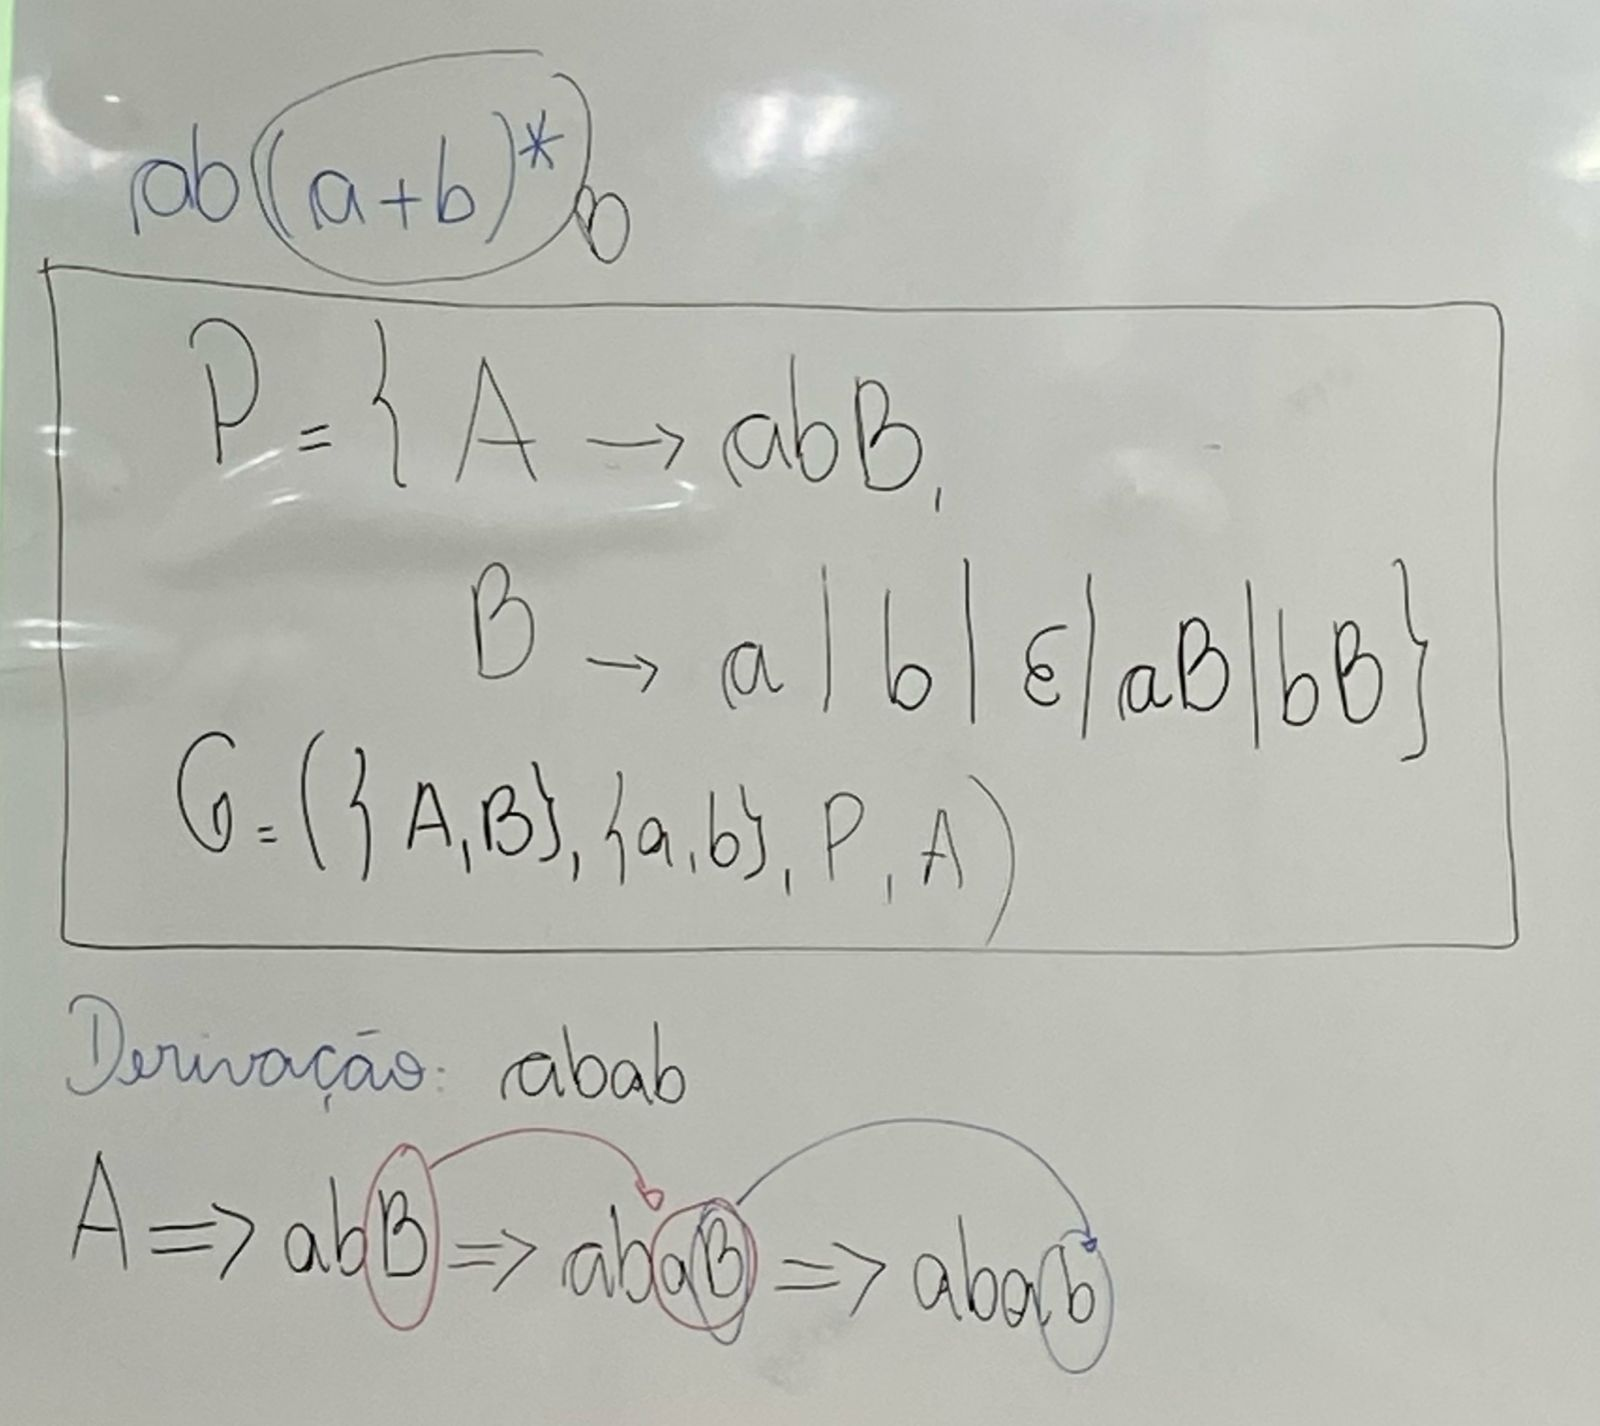 ab(a+b)* B
P = { A → abB,
B → a | b | ε | aB | bB }
G = ({A, B}, {a, b}, P, A)
Derivação: abab
A => abB => abaB => abab